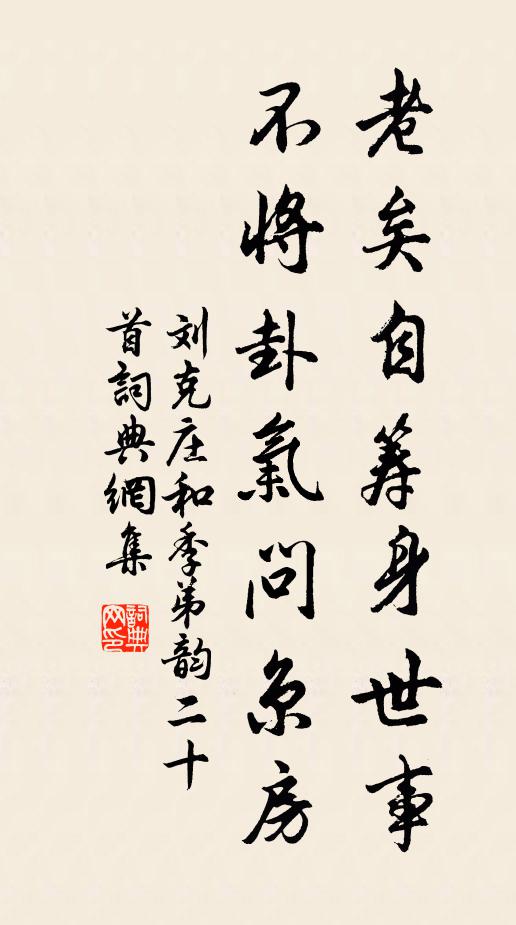 老矣自筹身世事
不将卦氣問京房
刘克庄和季弟韵二十
首詞典網集
詞典网印